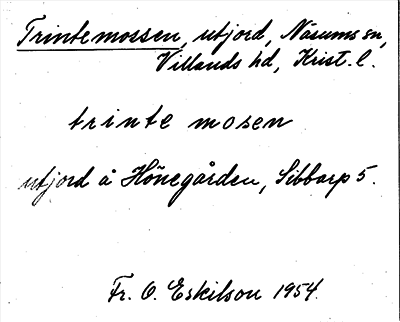 Trintemossen, utjord, Näsums sn,
Villands hd, Krist. l.
trinte mosen
utjord å Hönegården, Sibbarp 5.
Fr. O. Eskilson 1954.